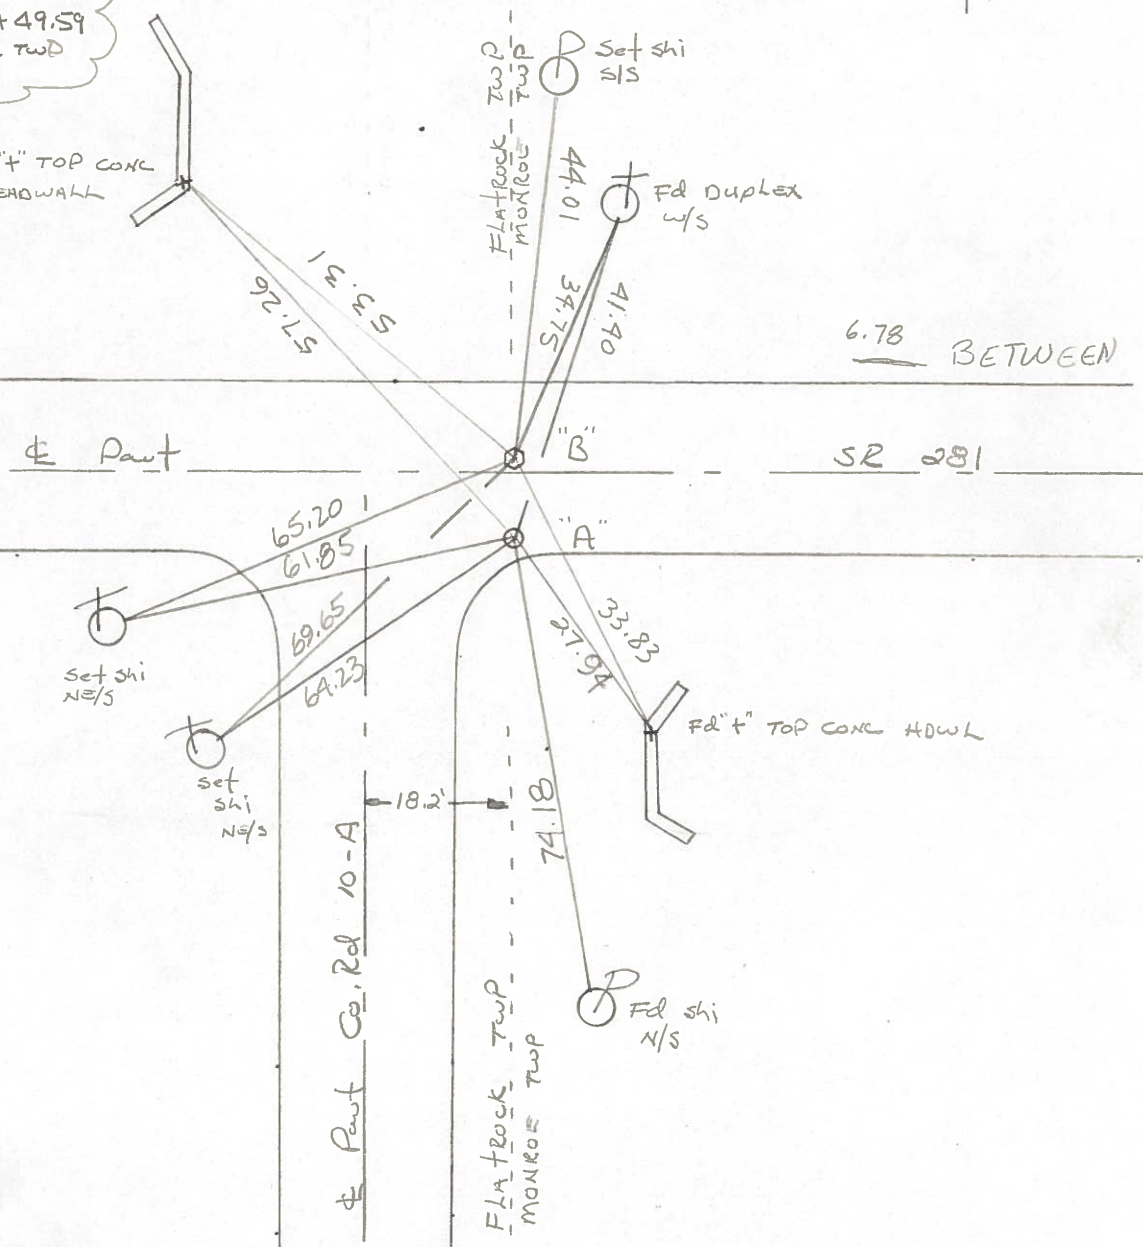 +49.59
TWP
"+" TOP CONC
EADWALL
FLATROCK TWP
MONROE TWP
Set shi
S/S
44.01
Fd DUPLEX
W/S
53.31
57.26
34.75
41.40
6.78 BETWEEN
℄ Pavt
"B"
SR 281
65.20
61.85
"A"
69.65
64.23
33.83
27.94
Set shi
NE/S
set
shi
NE/S
Fd "+" TOP CONC HDWL
18.2'
74.18
℄ Pavt Co. Rd 10-A
FLATROCK TWP
MONROE TWP
Fd shi
N/S